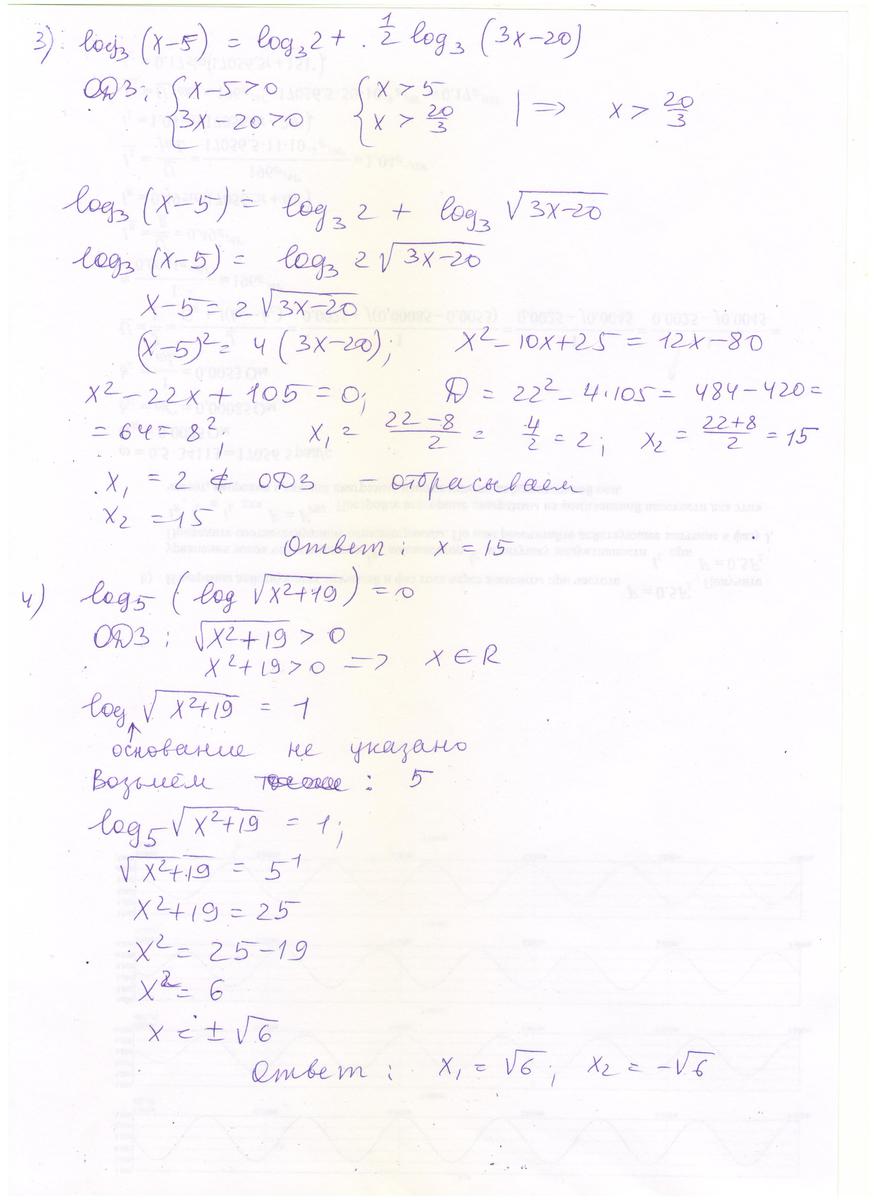 3) log₃(x−5) = log₃2 + ½ log₃(3x−20)
ОДЗ: { x−5>0 { x>5 | ⇒ x > 20/3
{ 3x−20>0 { x > 20/3
log₃(x−5) = log₃2 + log₃√(3x−20)
log₃(x−5) = log₃2√(3x−20)
x−5 = 2√(3x−20)
(x−5)² = 4(3x−20); x²−10x+25 = 12x−80
x²−22x+105=0; D = 22²−4·105 = 484−420 =
= 64 = 8²; x₁ = (22−8)/2 = 4/2 = 2; x₂ = (22+8)/2 = 15
x₁ = 2 ∉ ОДЗ − отбрасываем
x₂ = 15
Ответ: x = 15
4) log₅(log√(x²+19)) = 0
ОДЗ: √(x²+19) > 0
x²+19>0 => x ∈ R
log√(x²+19) = 1
↑
основание не указано
Возьмём : 5
log₅√(x²+19) = 1;
√(x²+19) = 5¹
x²+19 = 25
x² = 25−19
x² = 6
x = ±√6
Ответ: x₁ = √6; x₂ = −√6